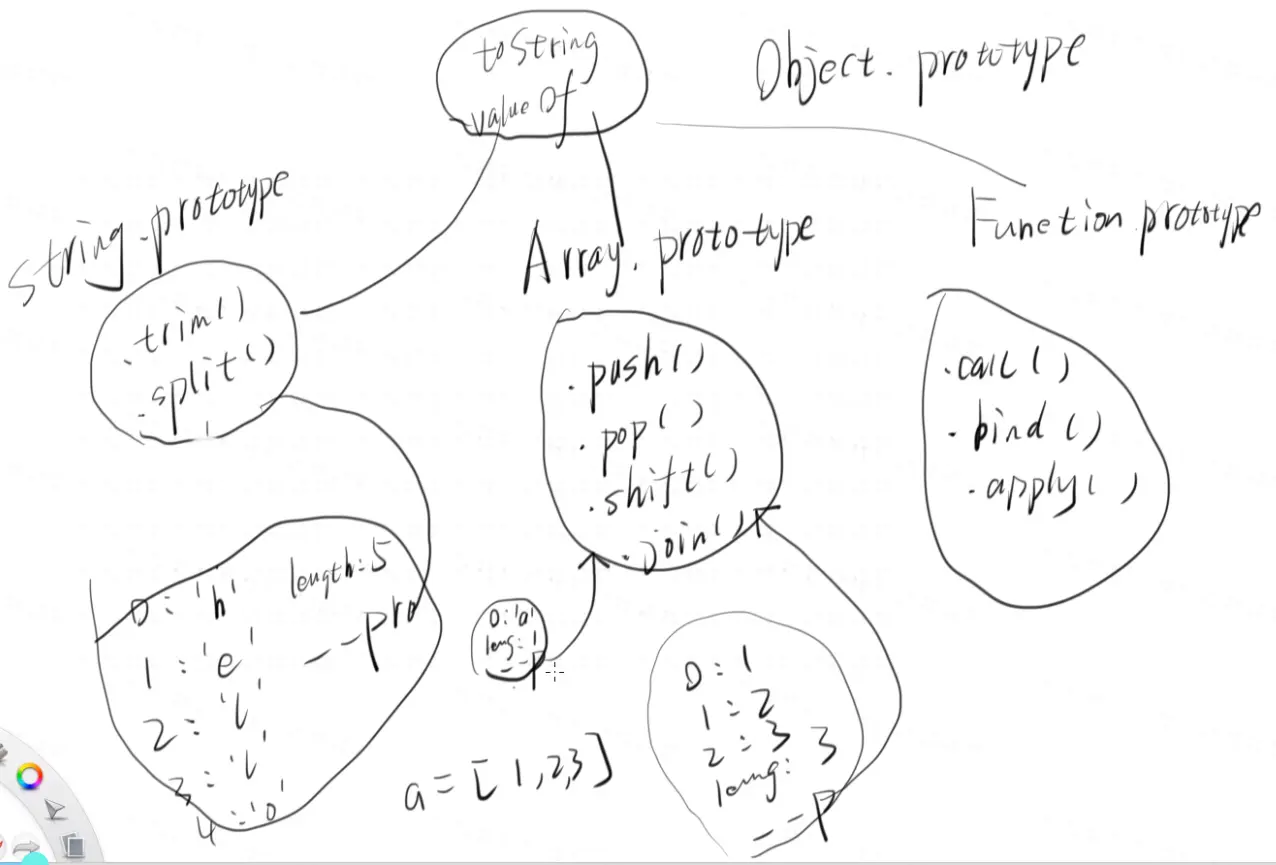 toString
valueOf
Object.prototype
string.prototype
.trim()
.split()
Array.prototype
.push()
.pop()
.shift()
.join()
Function prototype
.call()
.bind()
.apply()
0:'h' length:5
1:'e' --pro
2:'l'
3:'l'
4:'o'
0:'a'
leng:1
--p
a=[1,2,3]
0:1
1:2
2:3
leng:3
--p